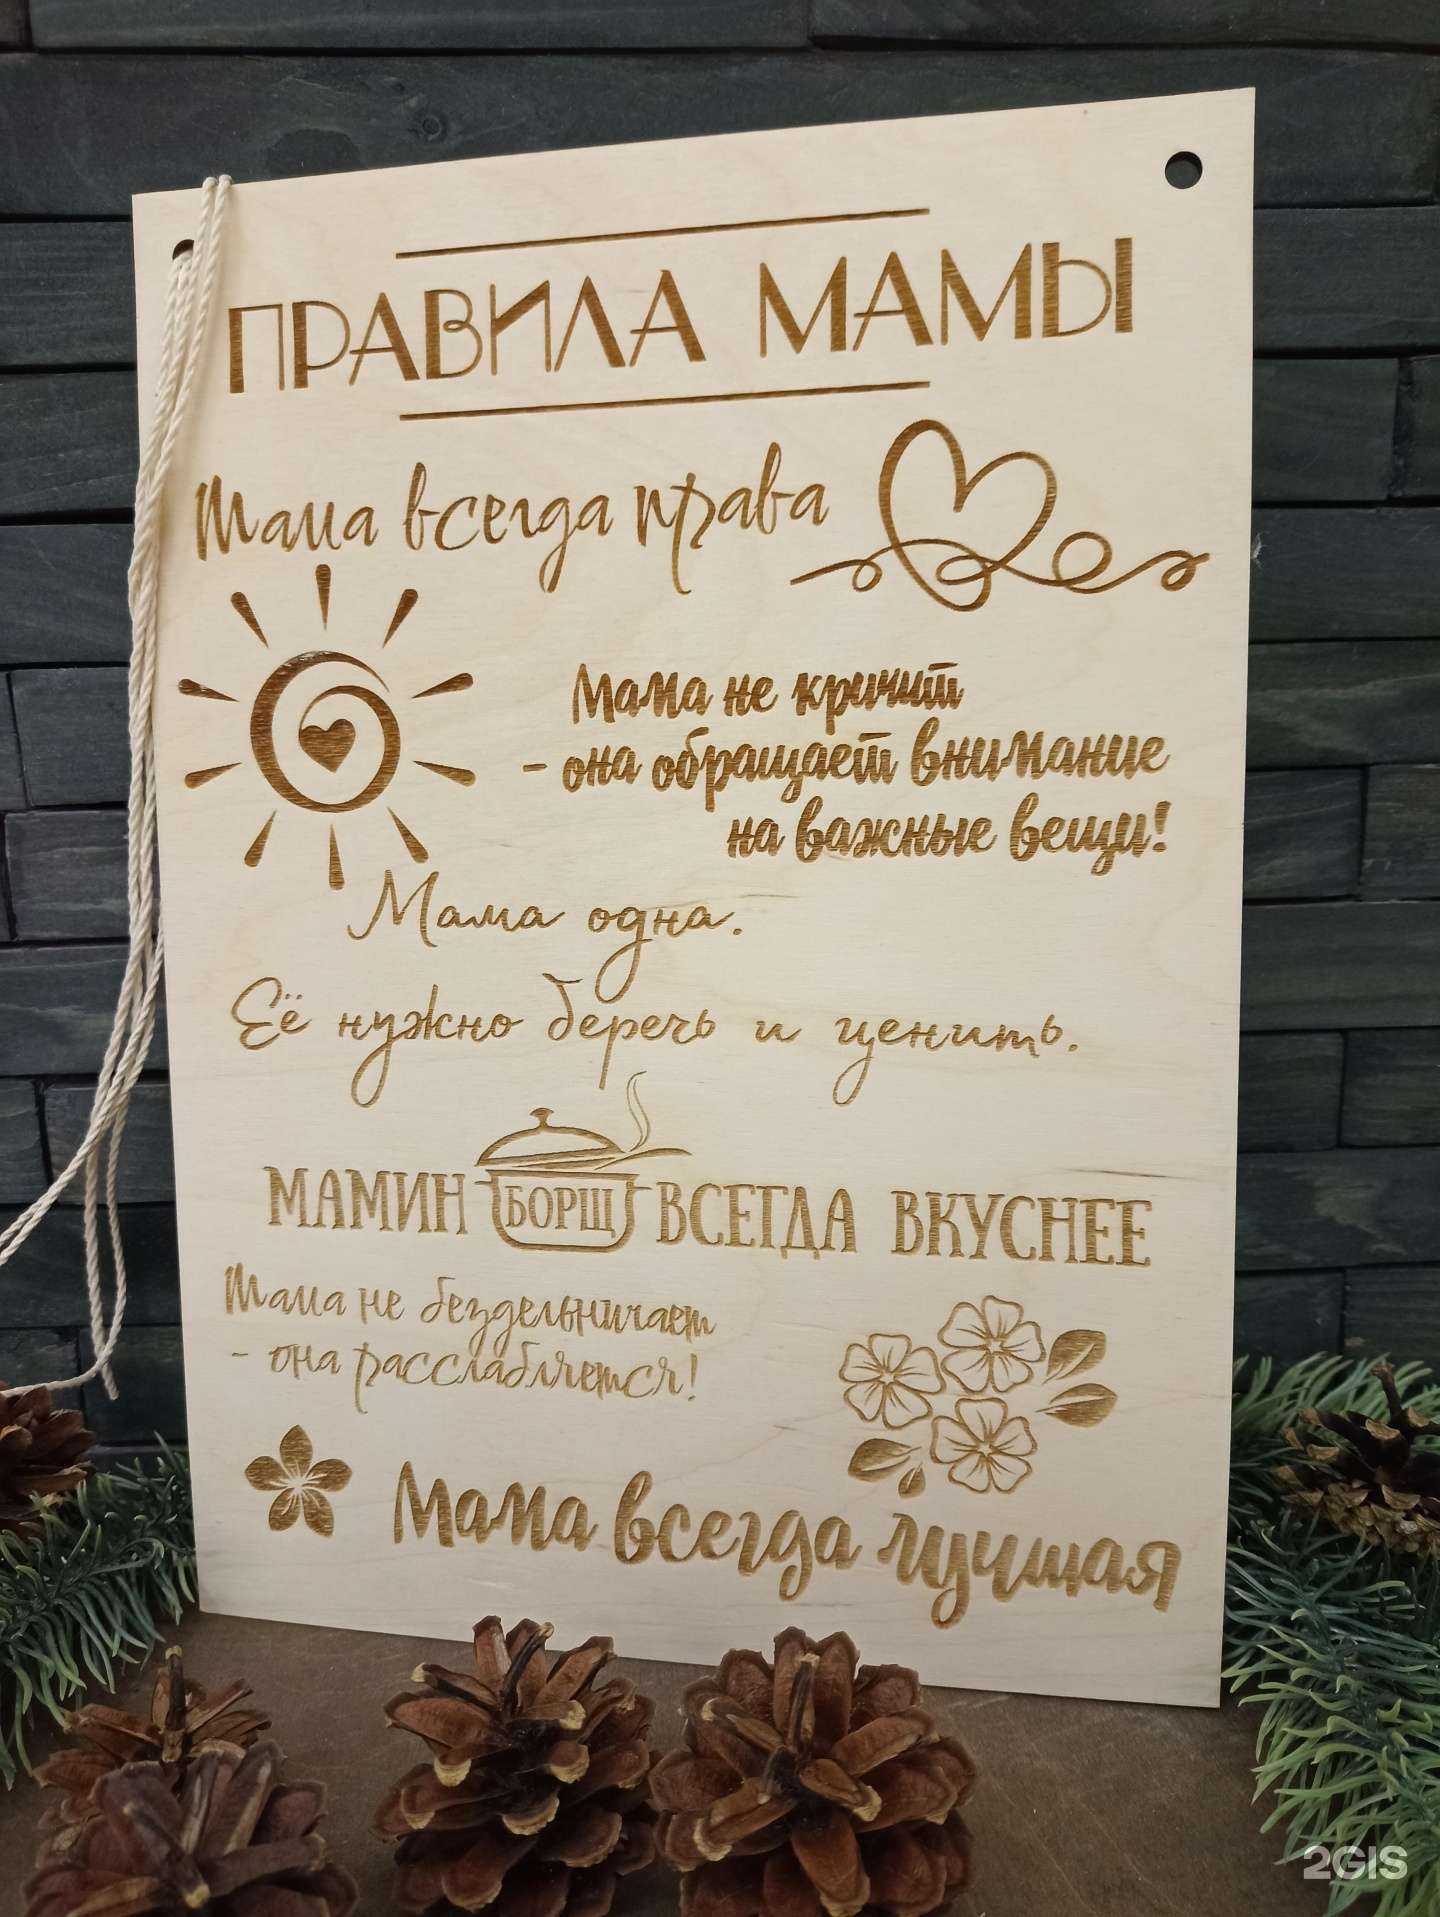 ПРАВИЛА МАМЫ
Мама всегда права
Мама не кричит
- она обращает внимание
на важные вещи!
Мама одна.
Её нужно беречь и ценить.
МАМИН БОРЩ ВСЕГДА ВКУСНЕЕ
Мама не бездельничает
- она расслабляется!
Мама всегда лучшая
2GIS